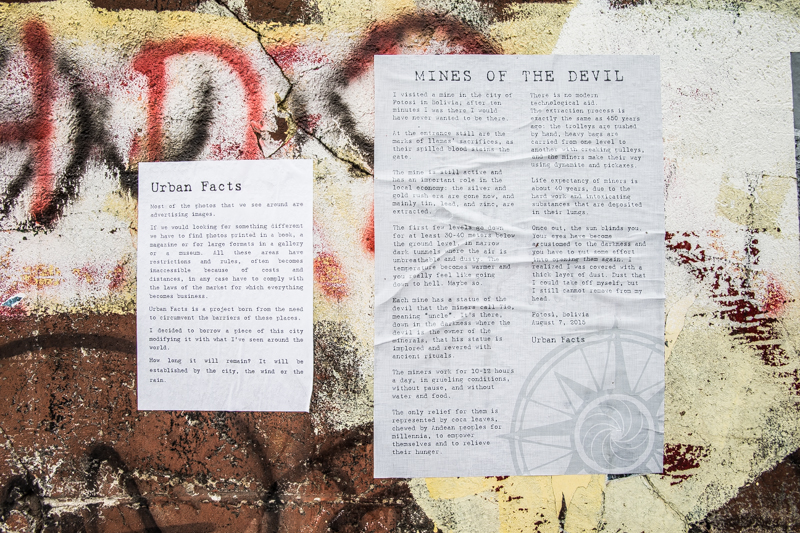 Urban Facts
Most of the photos that we see around are
advertising images.
If we would looking for something different
we have to find photos printed in a book, a
magazine or for large formats in a gallery
or a museum. All these areas have
restrictions and rules, often becomes
inaccessible because of costs and
distances, in any case have to comply with
the laws of the market for which everything
becomes business.
Urban Facts is a project born from the need
to circumvent the barriers of these places.
I decided to borrow a piece of this city
modifying it with what I've seen around the
world.
How long it will remain? It will be
established by the city, the wind or the
rain.
MINES OF THE DEVIL
I visited a mine in the city of
Potosi in Bolivia; after ten
minutes I was there I would
have never wanted to be there.
At the entrance still are the
marks of llamas' sacrifices, as
their spilled blood stains the
gate.
The mine is still active and
has an important role in the
local economy: the silver and
gold rush are gone now, and
mainly tin, lead, and zinc, are
extracted.
The first few levels go down
for at least 30-40 meters below
the ground level, in narrow
dark tunnels where the air is
unbreathable and dusty. The
temperature becomes warmer and
you really feel like going
down to hell. Maybe so.
Each mine has a statue of the
devil that the miners call Tio,
meaning "uncle". It's there,
down in the darkness where the
devil is the owner of the
minerals, that his statue is
implored and revered with
ancient rituals.
The miners work for 10-12 hours
a day, in grueling conditions,
without pause, and without
water and food.
The only relief for them is
represented by coca leaves,
chewed by Andean peoples for
millennia, to empower
themselves and to relieve
their hunger.
There is no modern
technological aid.
The extraction process is
exactly the same as 450 years
ago: the trolleys are pushed
by hand, heavy bags are
carried from one level to
another with creaking pulleys,
and the miners make their way
using dynamite and pickaxes.
Life expectancy of miners is
about 40 years, due to the
hard work and intoxicating
substances that are deposited
in their lungs.
Once out, the sun blinds you.
Your eyes have become
accustomed to the darkness and
you have to put some effort
into opening them again. I
realized I was covered with a
thick layer of dust. Dust that
I could take off myself, but
I still cannot remove from my
head.
Potosi, Bolivia
August 7, 2015
Urban Facts